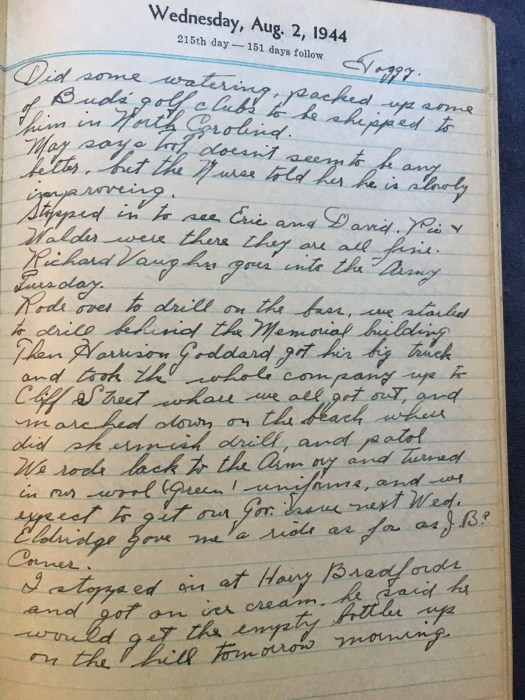 Wednesday, Aug. 2, 1944
215th day — 151 days follow
Foggy.
Did some watering, packed up some
of Buds golf clubs to be shipped to
him in North Carolina.
May says doesn't seem to be any
better, but the Nurse told her he is slowly
improveing.
Stopped in to see Eric and David. Pie &
Walder were there they are all fine.
Richard Vaughn goes into the Army
Tuesday.
Rode over to drill on the bus, we started
to drill behind the Memorial building
Then Harrison Goddard got his big truck
and took the whole company up to
Cliff Street whare we all got out, and
marched down on the beach where
did skermish drill, and patol
We rode back to the Armory and turned
in our wool (Green) uniforms, and we
expect to get our Gov. issue next Wed.
Eldridge gave me a ride as far as J.B.s
Corner.
I stopped in at Harry Bradfords
and got an ice cream. he said he
would get the empty bottles up
on the hill tomorrow morning